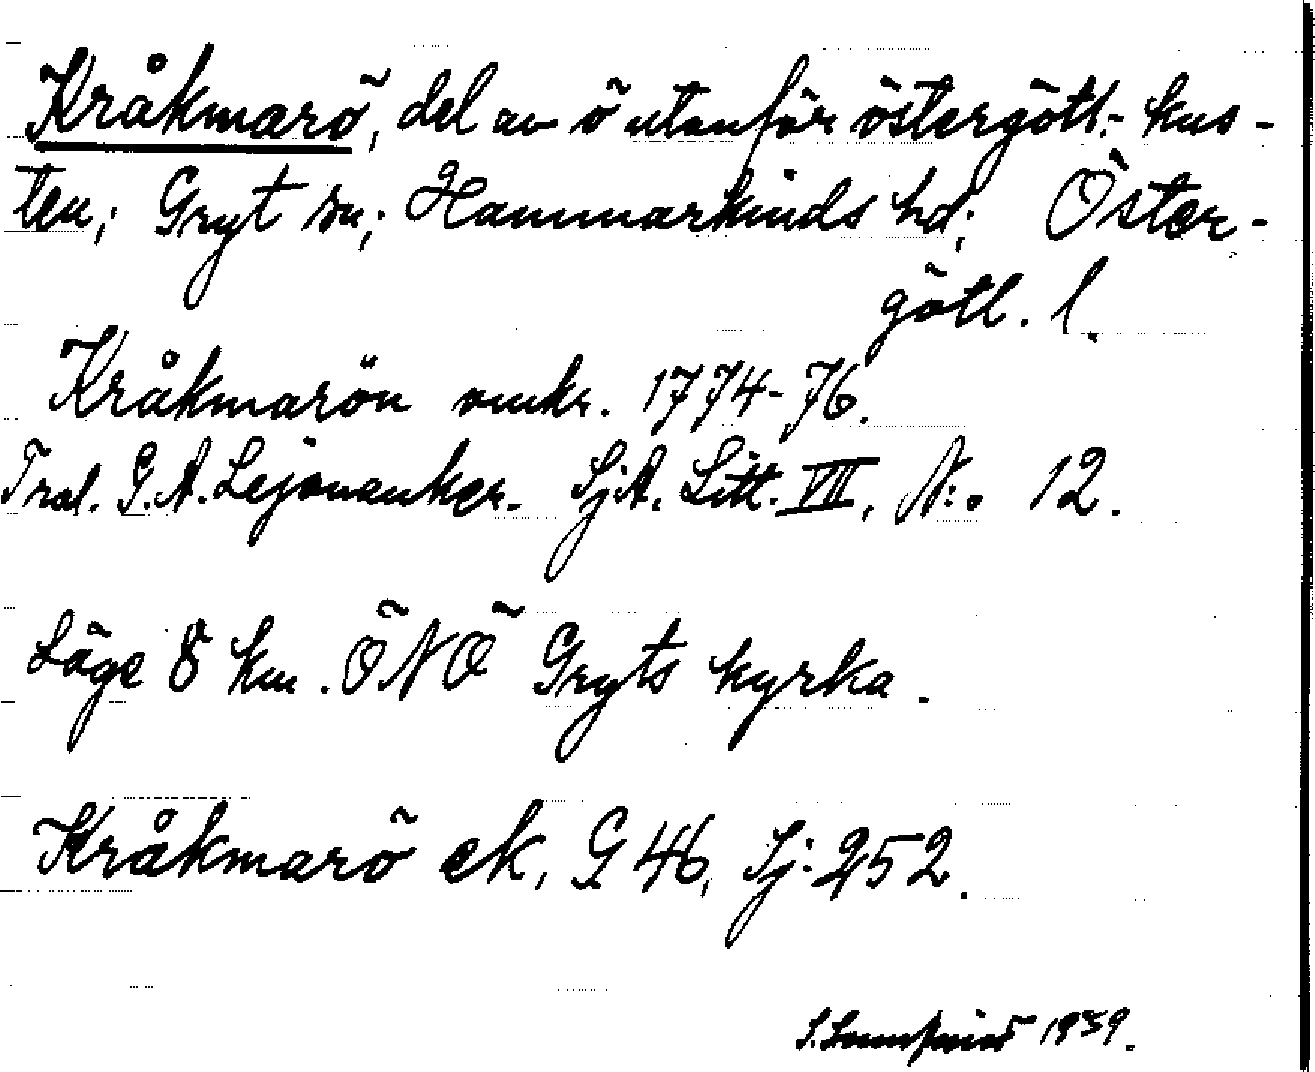 Kråkmarö, del av ö utanför östergötl:- kus-
ten; Gryt sn; Hammarkinds hd; Öster-
götl. l.
Kråkmarön omkr. 1774-76.
Trol. G.A. Lejonanker. SjA. Litt. VII, N:o 12.
Läge 8 km. ÖNÖ Gryts kyrka.
Kråkmarö ek, G 46, Sj: 252.
1939.